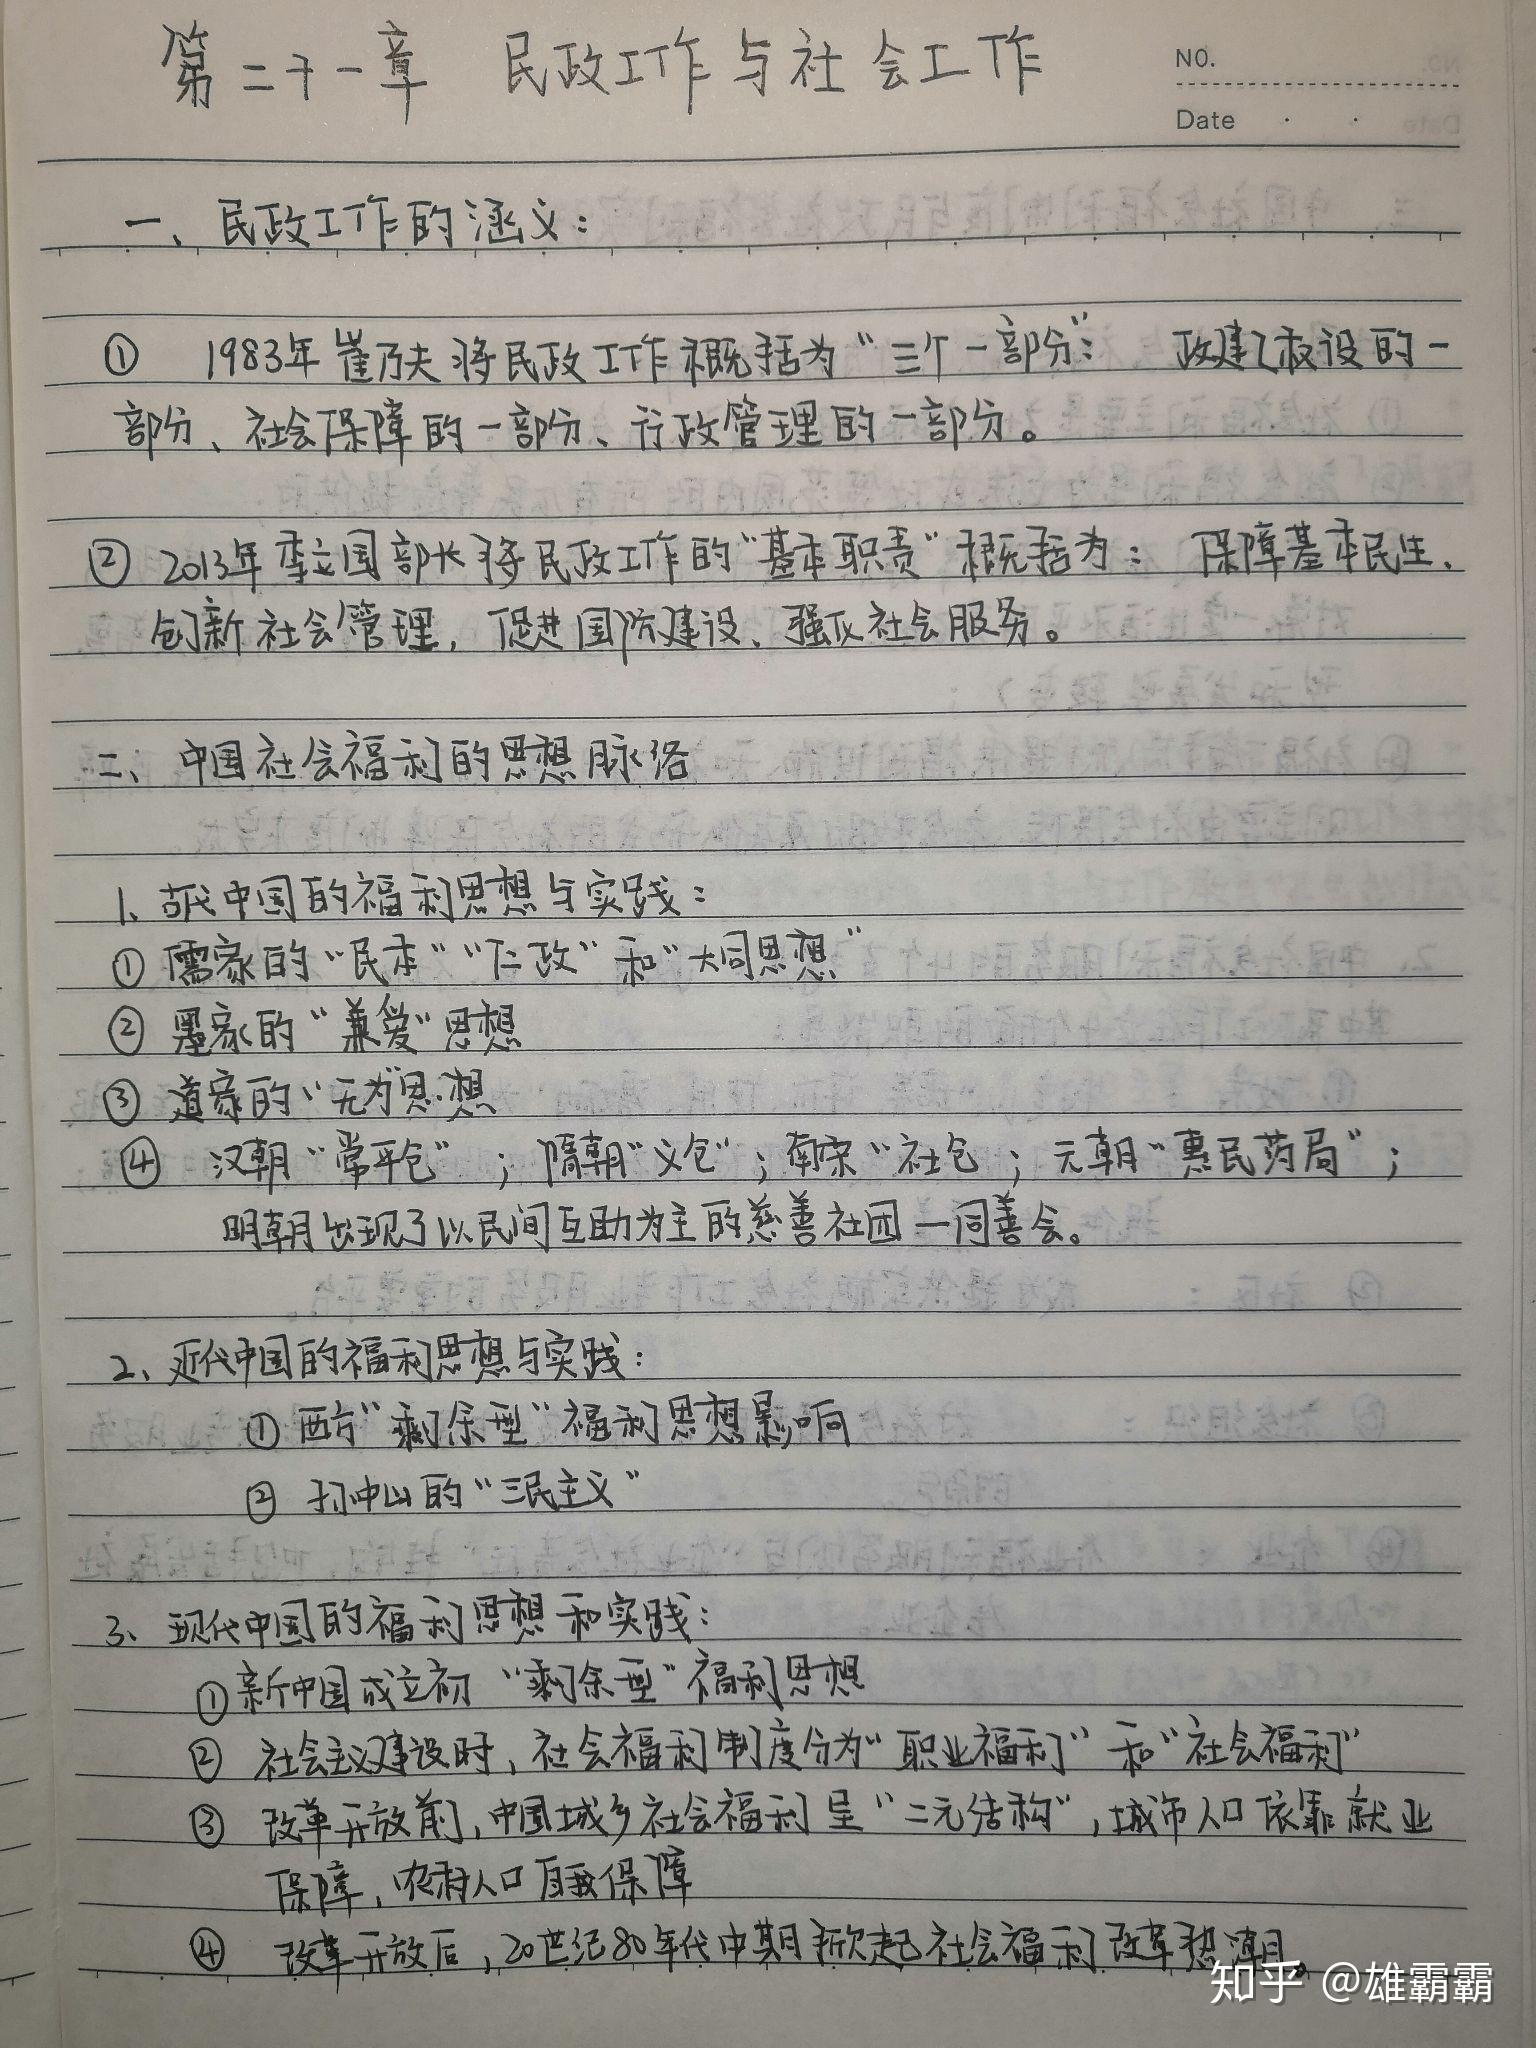 第二十一章 民政工作与社会工作
NO.
Date
一、民政工作的涵义：
① 1983年崔乃夫将民政工作概括为“三个一部分”： 政建权设的一
部分、社会保障的一部分、行政管理的一部分。
② 2013年李立国部长将民政工作的“基本职责”概括为： 保障基本民生、
创新社会管理，促进国防建设、强化社会服务。
二、中国社会福利的思想脉络
1、古代中国的福利思想与实践：
① 儒家的“民本”“仁政”和“大同思想”
② 墨家的“兼爱”思想
③ 道家的“无为”思想
④ 汉朝“常平仓”；隋朝“义仓”；南宋“社仓；元朝“惠民药局”；
明朝出现了以民间互助为主的慈善社团一同善会。
2、近代中国的福利思想与实践：
① 西方“剩余型”福利思想影响
② 孙中山的“三民主义”
3、现代中国的福利思想和实践：
① 新中国成立初“剩余型”福利思想
② 社会主义建设时，社会福利制度分为“职业福利”和“社会福利”
③ 改革开放前，中国城乡社会福利呈“二元结构”，城市人口依靠就业
保障，农村人口自我保障
④ 改革开放后，20世纪80年代中期掀起社会福利改革热潮。
知乎 @雄霸霸